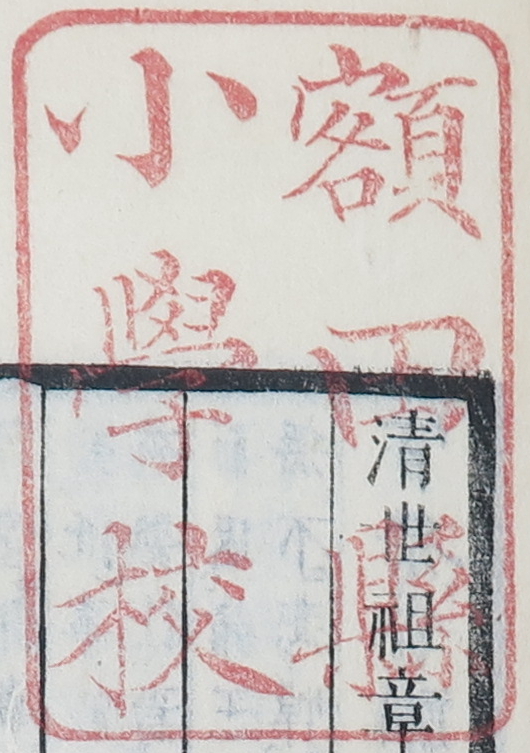 額田縣
小學校
清世祖章